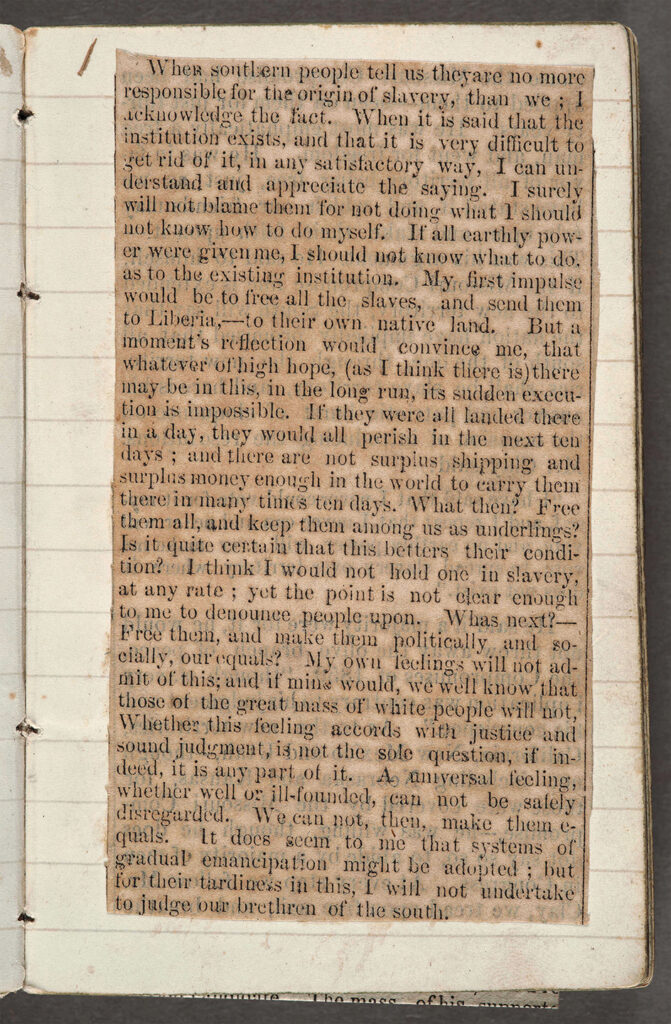 When southern people tell us theyare no more
responsible for the origin of slavery, than we ; I
acknowledge the fact. When it is said that the
institution exists, and that it is very difficult to
get rid of it, in any satisfactory way, I can un-
derstand and appreciate the saying. I surely
will not blame them for not doing what I should
not know how to do myself. If all earthly pow-
er were given me, I should not know what to do,
as to the existing institution. My first impulse
would be to free all the slaves, and send them
to Liberia,—to their own native land. But a
moment's reflection would convince me, that
whatever of high hope, (as I think there is)there
may be in this, in the long run, its sudden execu-
tion is impossible. If they were all landed there
in a day, they would all perish in the next ten
days ; and there are not surplus shipping and
surplus money enough in the world to carry them
there in many times ten days. What then? Free
them all, and keep them among us as underlings?
Is it quite certain that this betters their condi-
tion? I think I would not hold one in slavery,
at any rate ; yet the point is not clear enough
to me to denounce people upon. Whas next?—
Free them, and make them politically and so-
cially, our equals? My own feelings will not ad-
mit of this; and if mine would, we well know that
those of the great mass of white people will not,
Whether this feeling accords with justice and
sound judgment, is not the sole question, if in-
deed, it is any part of it. A universal feeling,
whether well or ill-founded, can not be safely
disregarded. We can not, then, make them e-
quals. It does seem to me that systems of
gradual emancipation might be adopted ; but
for their tardiness in this, I will not undertake
to judge our brethren of the south.
The mass of his